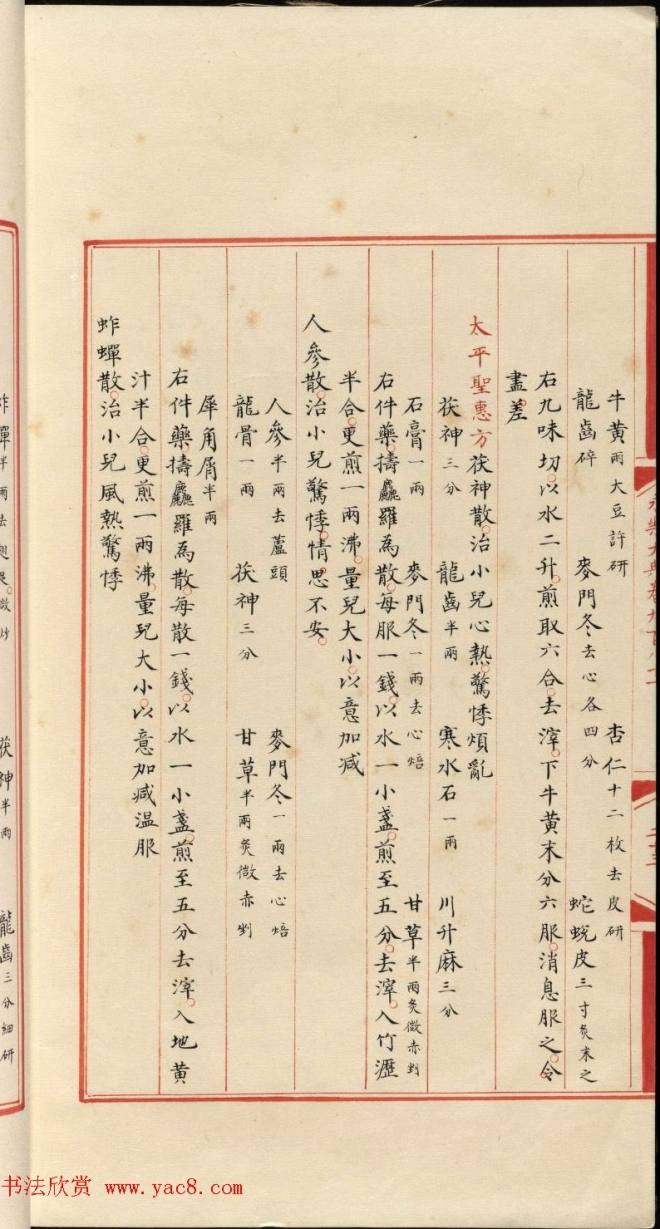 永樂大典卷九百八十二
二十三
牛黃兩大豆許研 杏仁十二枚去皮研
龍齒碎 麥門冬去心各四分 蛇蛻皮三寸炙末之
右九味切以水二升煎取六合去滓下牛黃末分六服消息服之令
盡差
太平聖惠方茯神散治小兒心熱驚悸煩亂
茯神三分 龍齒半兩 寒水石一兩 川升麻三分
石膏一兩 麥門冬一兩去心焙 甘草半兩炙微赤剉
右件藥擣麤羅為散每服一錢以水一小盞煎至五分去滓入竹瀝
半合更煎一兩沸量兒大小以意加減
人參散治小兒驚悸情思不安
人參半兩去蘆頭 麥門冬一兩去心焙
龍骨一兩 茯神三分 甘草半兩炙微赤剉
犀角屑半兩
右件藥擣麤羅為散每散一錢以水一小盞煎至五分去滓入地黃
汁半合更煎一兩沸量兒大小以意加減溫服
蚱蟬散治小兒風熱驚悸
蚱蟬半兩去翅足微炒 茯神半兩 龍齒三分細研
书法欣赏 www.yac8.com